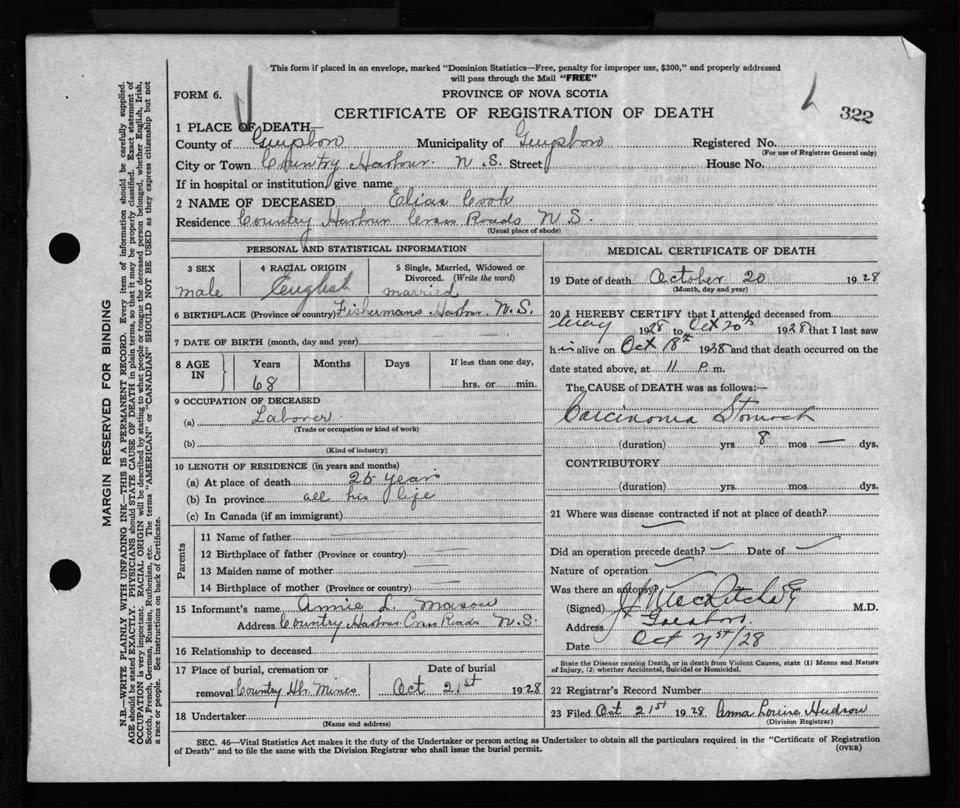 This form if placed in an envelope, marked "Dominion Statistics—Free, penalty for improper use, $300," and properly addressed
will pass through the Mail "FREE"
FORM 6.
PROVINCE OF NOVA SCOTIA
CERTIFICATE OF REGISTRATION OF DEATH
322
1 PLACE OF DEATH—
County of Guysboro Municipality of Guysboro Registered No.
(For use of Registrar General only)
City or Town Country Harbour N.S. Street House No.
If in hospital or institution, give name
2 NAME OF DECEASED Elias Cook
Residence Country Harbour Cross Roads N.S.
(Usual place of abode)
PERSONAL AND STATISTICAL INFORMATION
3 SEX
male
4 RACIAL ORIGIN
English
5 Single, Married, Widowed or
Divorced. (Write the word)
married
6 BIRTHPLACE (Province or country) Fishermans Harbour N.S.
7 DATE OF BIRTH (month, day and year) —
8 AGE
IN
Years
68
Months
Days
If less than one day,
hrs. or min.
9 OCCUPATION OF DECEASED
(a) Laborer
(Trade or occupation or kind of work)
(b)
(Kind of industry)
10 LENGTH OF RESIDENCE (in years and months)
(a) At place of death 25 years
(b) In province all his life
(c) In Canada (if an immigrant)
Parents
11 Name of father —
12 Birthplace of father (Province or country) —
13 Maiden name of mother —
14 Birthplace of mother (Province or country) —
15 Informant's name Annie L. Mason
Address Country Harbour Cross Roads N.S.
16 Relationship to deceased
17 Place of burial, cremation or
removal Country Hbr. Mines
Date of burial
Oct 21st 1928
18 Undertaker
(Name and address)
MEDICAL CERTIFICATE OF DEATH
19 Date of death October 20 1928
(Month, day and year)
20 I HEREBY CERTIFY that I attended deceased from
May 1928 to Oct 20th 1928 that I last saw
him alive on Oct 18th 1928 and that death occurred on the
date stated above, at 11 P.m.
The CAUSE OF DEATH was as follows:—
Carcinoma Stomach
(duration) yrs. 8 mos — dys.
CONTRIBUTORY
(duration) yrs mos dys.
21 Where was disease contracted if not at place of death?
Did an operation precede death? — Date of —
Nature of operation —
Was there an autopsy?
(Signed) M.D.
Address Goldboro
Date Oct 21st/28
State the Disease causing Death, or in death from Violent Causes, state (1) Means and Nature
of Injury, (2) whether Accidental, Suicidal or Homicidal.
22 Registrar's Record Number
23 Filed Oct 21st 1928 Anna Louise Hudson
(Division Registrar)
SEC. 46—Vital Statistics Act makes it the duty of the Undertaker or person acting as Undertaker to obtain all the particulars required in the "Certificate of Registration
of Death" and to file the same with the Division Registrar who shall issue the burial permit.
(OVER)
MARGIN RESERVED FOR BINDING
N.B.—WRITE PLAINLY WITH UNFADING INK—THIS IS A PERMANENT RECORD. Every item of information should be carefully supplied.
AGE should be stated EXACTLY. PHYSICIANS should STATE CAUSE OF DEATH in plain terms, so that it may be properly classified. Exact statement of
OCCUPATION is very important. RACIAL ORIGIN will be described by stating to what people or tongue the deceased person belonged, whether English, Irish,
Scotch, French, German, Russian, Ruthenian, etc. The terms "AMERICAN" or "CANADIAN" SHOULD NOT BE USED as they express citizenship but not
a race or people. See instructions on back of Certificate.